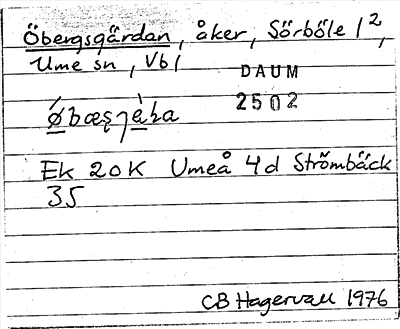 Öbergsgärdan, åker, Sörböle 1²,
Ume sn, Vb l
DAUM
2502
Ek 20K Umeå 4d Strömbäck
35
CB Hagervall 1976